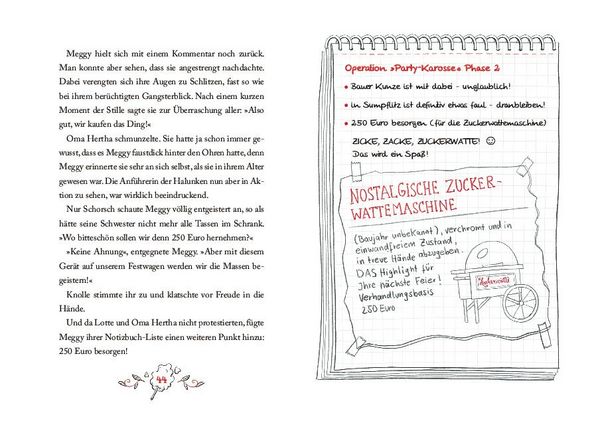 Meggy hielt sich mit einem Kommentar noch zurück.
Man konnte aber sehen, dass sie angestrengt nachdachte.
Dabei verengten sich ihre Augen zu Schlitzen, fast so wie
bei ihrem berüchtigten Gangsterblick. Nach einem kurzen
Moment der Stille sagte sie zur Überraschung aller: »Also
gut, wir kaufen das Ding!«
Oma Hertha schmunzelte. Sie hatte ja schon immer ge-
wusst, dass es Meggy faustdick hinter den Ohren hatte, denn
Meggy erinnerte sie sehr an sich selbst, als sie in ihrem Alter
gewesen war. Die Anführerin der Halunken nun aber in Ak-
tion zu sehen, war wirklich beeindruckend.
Nur Schorsch schaute Meggy völlig entgeistert an, so als
hätte seine Schwester nicht mehr alle Tassen im Schrank.
»Wo bitteschön sollen wir denn 250 Euro hernehmen?«
»Keine Ahnung«, entgegnete Meggy. »Aber mit diesem
Gerät auf unserem Festwagen werden wir die Massen be-
geistern!«
Knolle stimmte ihr zu und klatschte vor Freude in die
Hände.
Und da Lotte und Oma Hertha nicht protestierten, fügte
Meggy ihrer Notizbuch-Liste einen weiteren Punkt hinzu:
250 Euro besorgen!
44
Operation »Party-Karosse« Phase 2
• Bauer Kunze ist mit dabei - unglaublich!
• In Sumpflitz ist definitiv etwas faul - dranbleiben!
• 250 Euro besorgen (für die Zuckerwattemaschine)
ZICKE, ZACKE, ZUCKERWATTE! ☺
Das wird ein Spaß!
NOSTALGISCHE ZUCKER-
WATTEMASCHINE
(Baujahr unbekannt), verchromt und in
einwandfreiem Zustand,
in treue Hände abzugeben.
DAS Highlight für
Ihre nächste Feier!
Verhandlungsbasis
250 Euro
Zuckerwatte